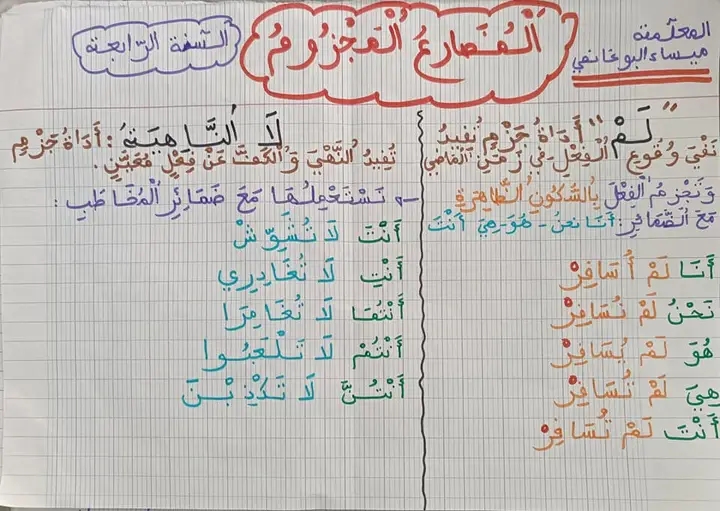 المعلّمة
ميساء البوغانمي
اَلْمُضَارِعُ الْمَجْزُومُ
السّنة الرّابعة
"لَمْ" أَدَاةُ جَزْمٍ تُفِيدُ
نَفْيَ وُقُوعِ الْفِعْلِ في زَمَنِ الْمَاضِي
وَتَجْزِمُ الْفِعْلَ بِالسُّكُونِ الظَّاهِرَةِ
مَعَ الضَّمَائِرِ: أَنَا نَحْنُ - هُوَ - هِيَ أَنْتَ
أَنَا لَمْ أُسَافِرْ
نَحْنُ لَمْ نُسَافِرْ
هُوَ لَمْ يُسَافِرْ
هِيَ لَمْ تُسَافِرْ
أَنْتَ لَمْ تُسَافِرْ
لَا النَّاهِيَةُ: أَدَاةُ جَزْمٍ
تُفِيدُ النَّهْيَ وَالْكَفَّ عَنْ فِعْلٍ مُعَيَّنٍ.
نَسْتَعْمِلُهَا مَعَ ضَمَائِرِ الْمُخَاطَبِ:
أَنْتَ لَا تُشَوِّشْ
أَنْتِ لَا تُغَادِرِي
أَنْتُمَا لَا تُغَامِرَا
أَنْتُمْ لَا تَلْعَبُوا
أَنْتُنَّ لَا تَكْذِبْنَ